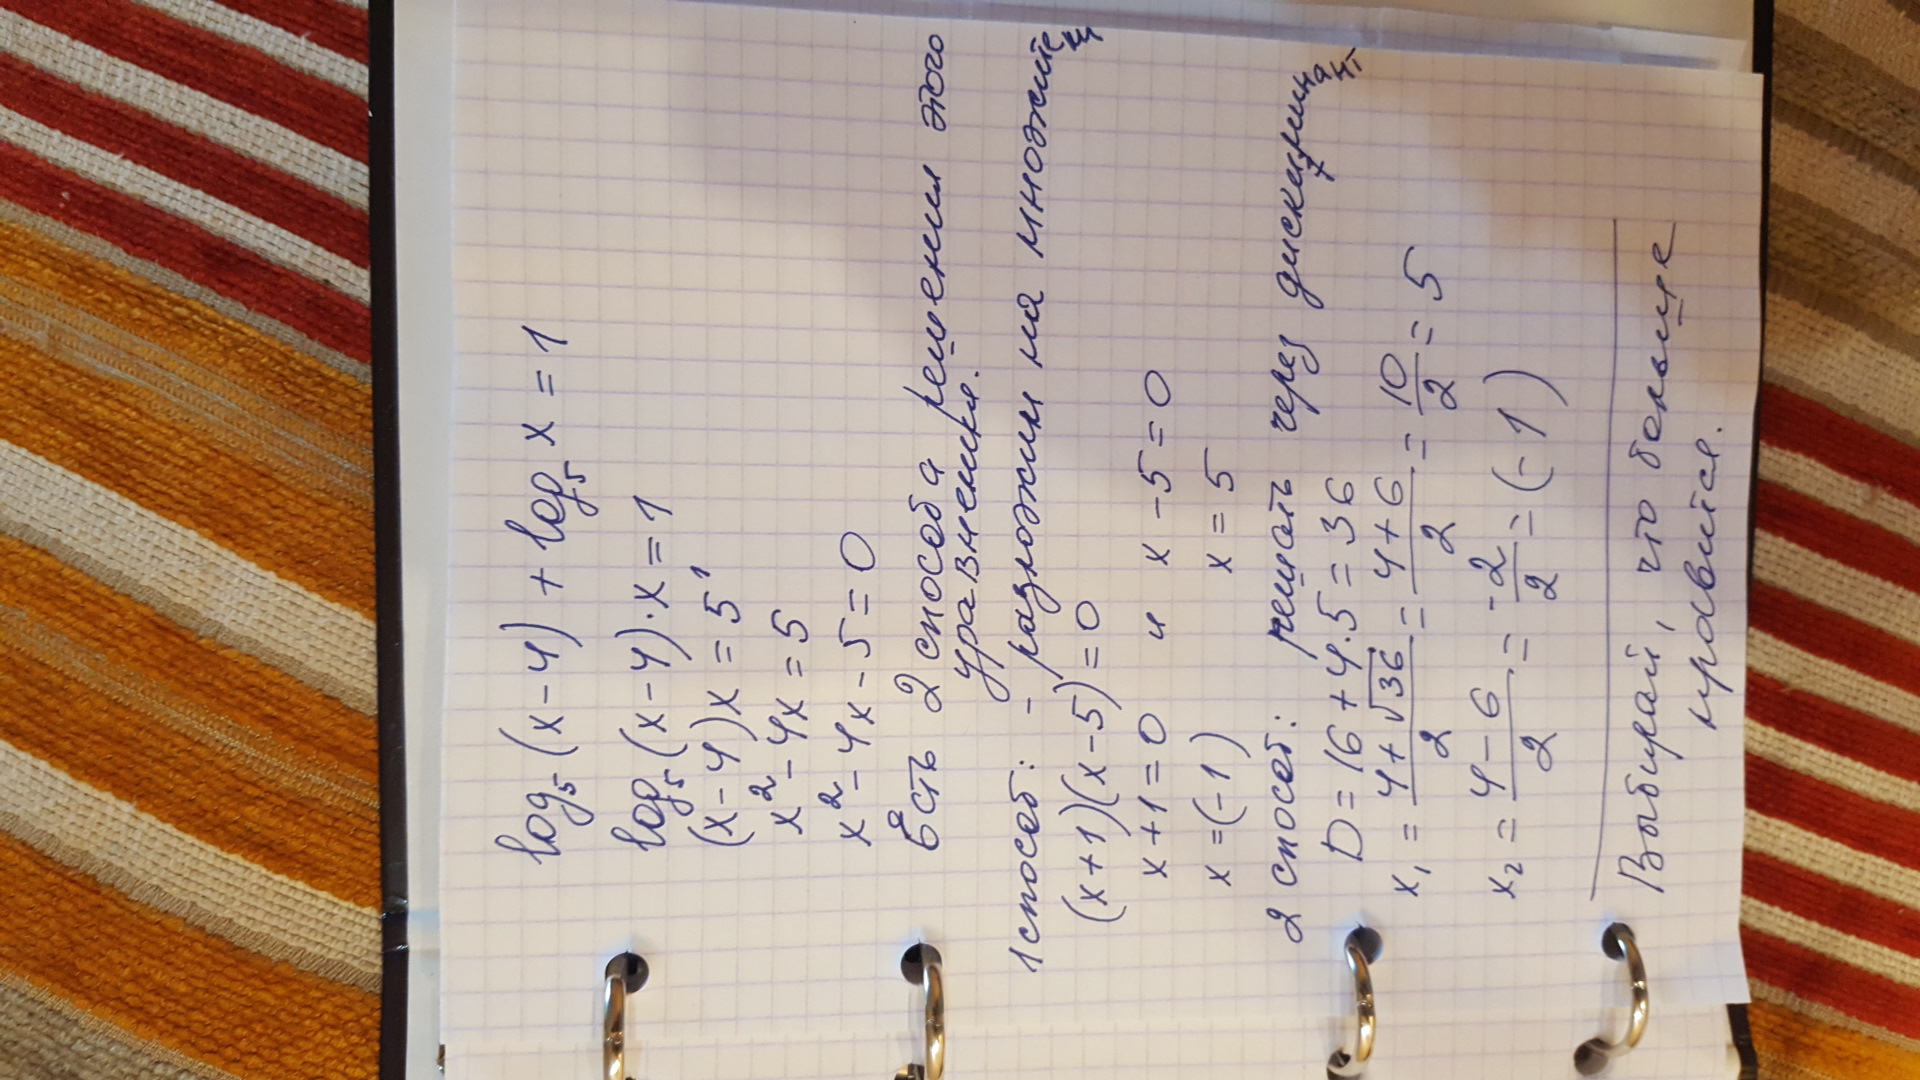 log₅(x-4) + log₅ x = 1
log₅(x-4)·x = 1
(x-4)x = 5¹
x²-4x = 5
x²-4x-5=0
Есть 2 способа решения этого
уравнения.
1 способ: - разложим на множители
(x+1)(x-5)=0
x+1=0 и x-5=0
x=(-1) x=5
2 способ: решать через дискриминант
D=16+4·5=36
x₁ = (4+√36)/2 = (4+6)/2 = 10/2 = 5
x₂ = (4-6)/2 = -2/2 = (-1)
Выбирай, что больше
нравится.